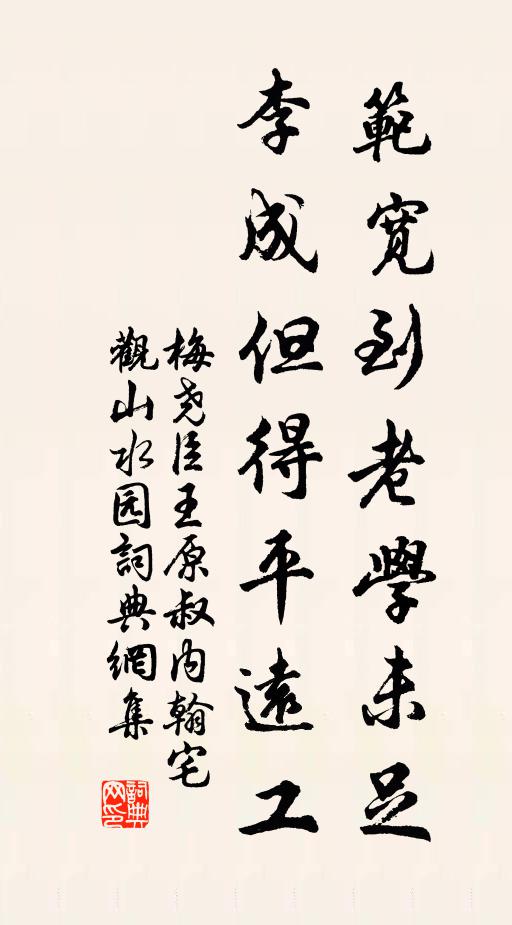 範寬到老學未足
李成但得平遠工
梅尧臣王原叔内翰宅
觀山水図詞典網集
詞典网印